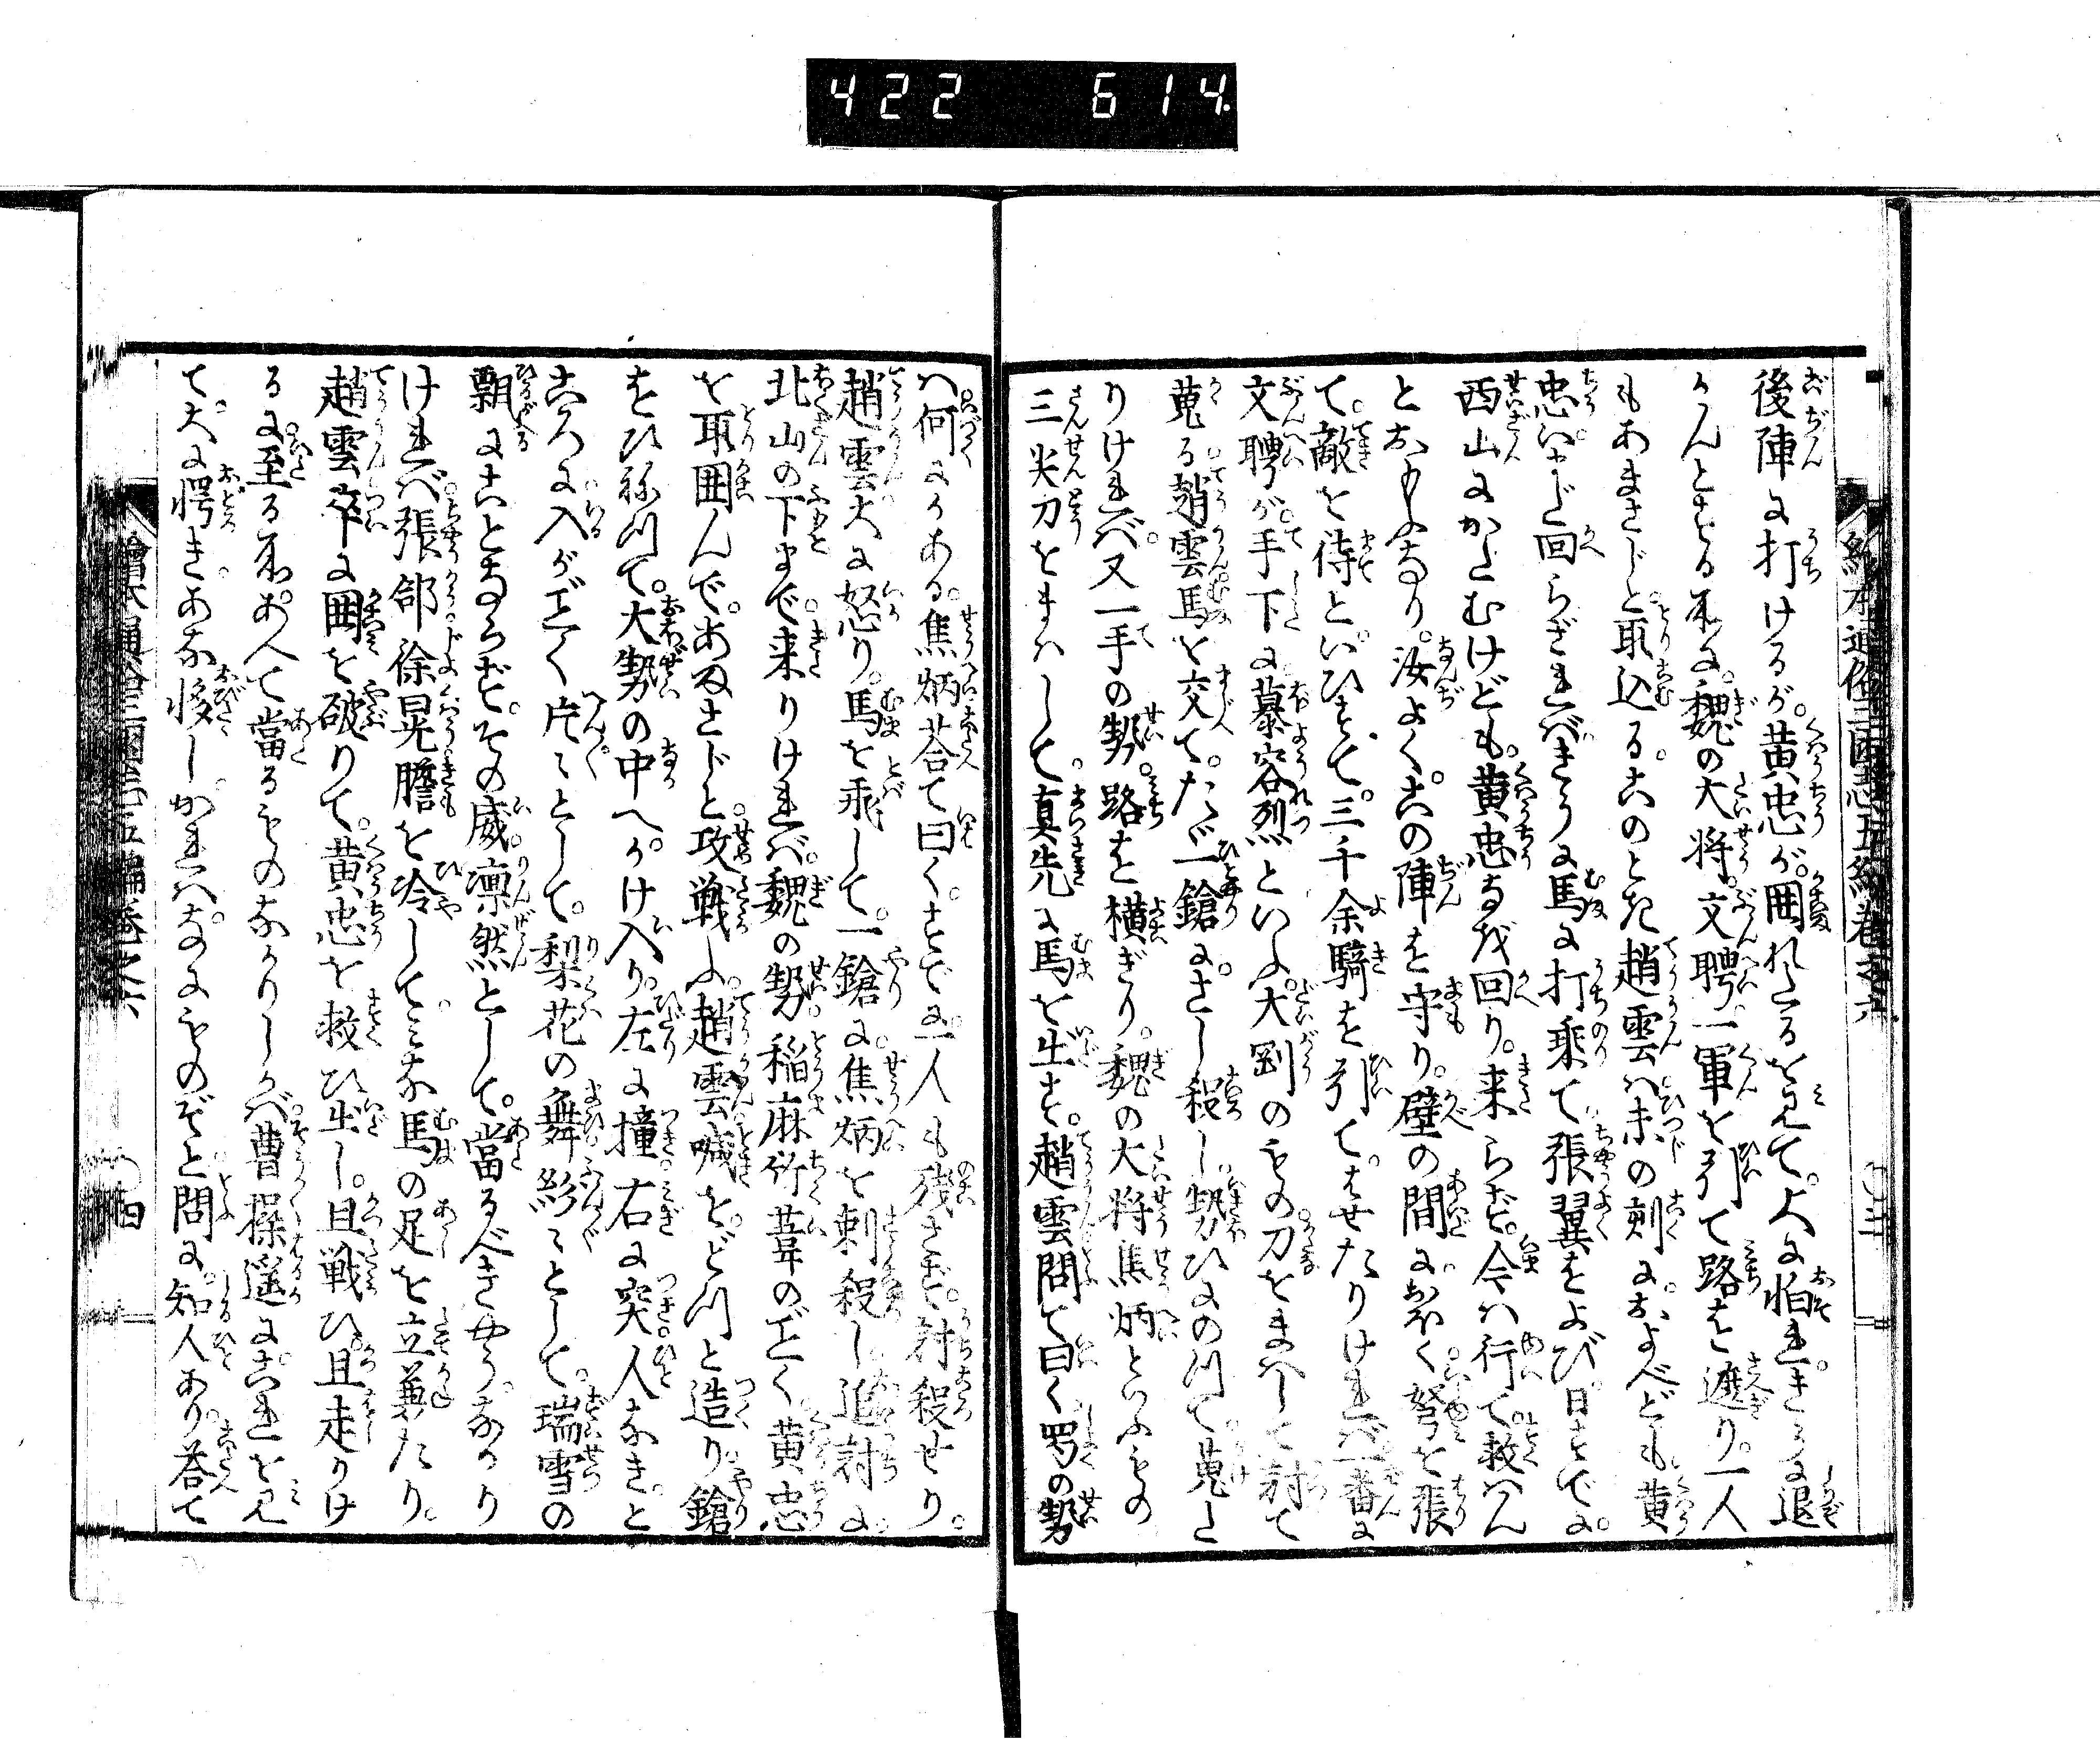 422 614
繪本通俗三國志五編巻之六
後陣に打けるが。黄忠が。囲れたるを見て。大に怕れ。きうに退
かんとする所に。魏の大将。文聘一軍を引て路を遮り。一人
もあまさじと取込る。このとき趙雲は。未の刻におよべども黄
忠いまだ回らざれバ。きうに馬に打乗て。張翼をよび。日すでに。
西山にかたむけども。黄忠なを回り。来らず。今ハ行て。救ハん
とおもふなり。汝よく。この陣を守り。壁の間に。おほく弩を張
て。敵を待と。いひすて。三千余騎を引て。はせたりけれバ。一番に
文聘が。手下に慕容烈といふ。大剛のもの刀をまハして討て
蒐る。趙雲馬を交て。たゞ一鎗に。さし殺し。勢ひにのつて。蒐た
りけれバ。又一手の勢。路を横ぎり。魏の大将焦炳といふもの
三尖刀をまハして。真先に馬を出す。趙雲問て曰く蜀の勢
ハ何にかある。焦炳荅て曰く。すでに一人も残さず。討殺せり。
趙雲大に怒り。馬を飛して。一鎗に焦炳を刺殺し。追討に。
北山の下まで。来りけれバ。魏の勢。稲麻竹葦の正く。黄忠
を取囲んで。あまさじと。攻戦ふ。趙雲喊を。どつと造り。鎗
をひ祢つて。大勢の中へ。かけ入り。左に撞右に突。人なき。と
ころに入が正く。片〻として。梨花の舞。紛〻として。瑞雪の
飄にことならず。その威。凛然として。當るべきやうなかり
けれバ。張郃。徐晃。膽を冷して。みな馬の足を立兼たり。
趙雲卒に囲を破りて。黄忠を救ひ出し。且戦ひ。且走りけ
るに。至る所。あへて當るものなかりしかバ。曹操遥に。これを見
て。大に愕き。あな夥し。かれハ。なにものぞと問に。知人あり。荅て
繪本通俗三國志五編巻之六 四